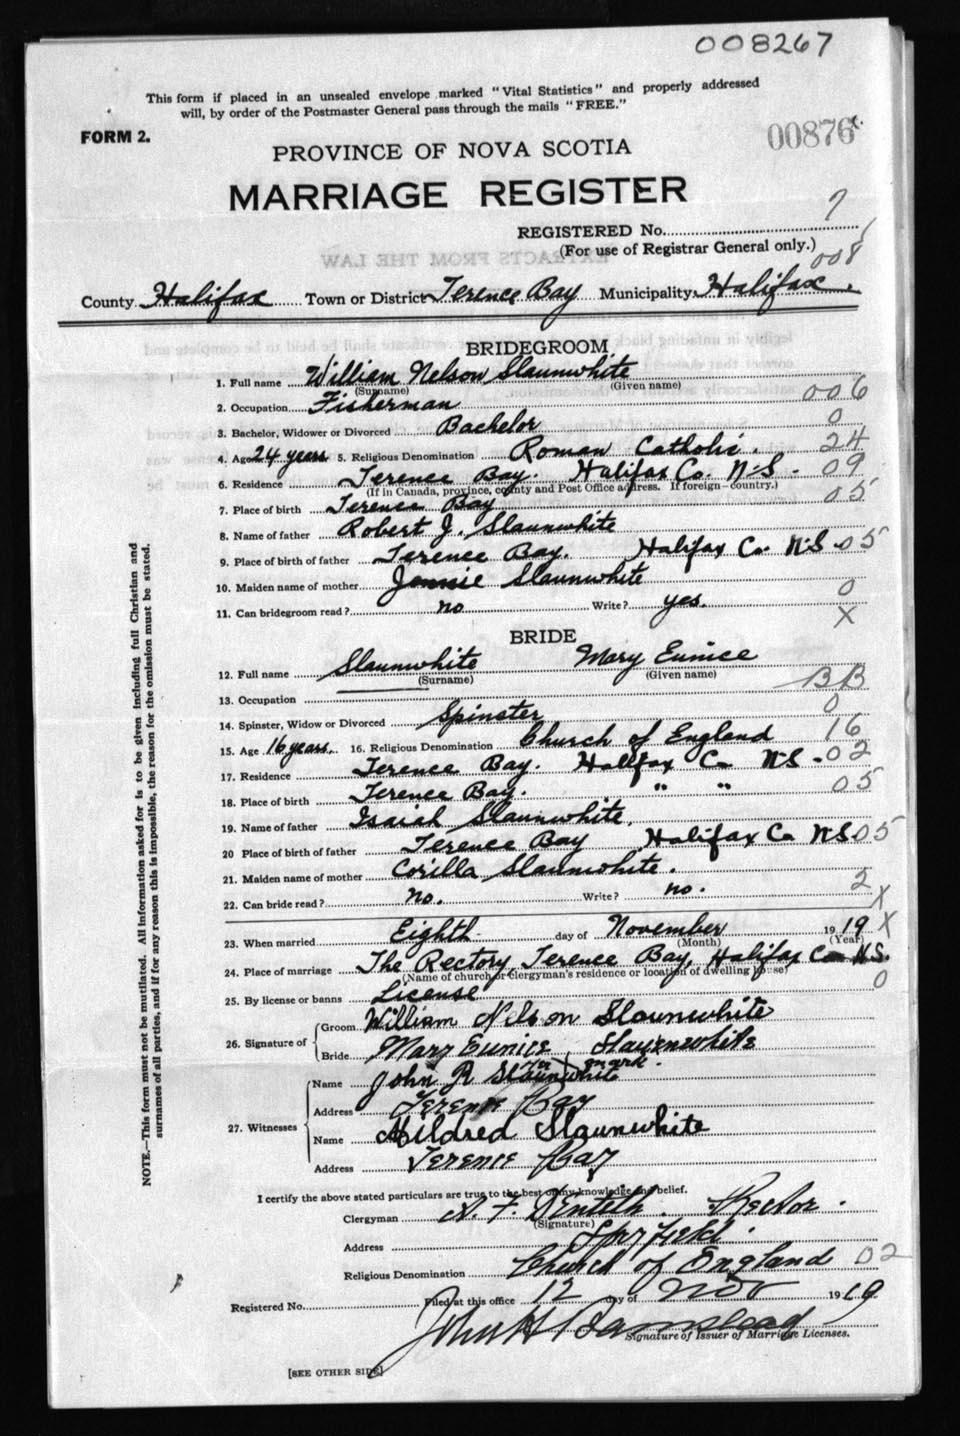 008267
This form if placed in an unsealed envelope marked "Vital Statistics" and properly addressed
will, by order of the Postmaster General pass through the mails "FREE."
FORM 2.
00876
PROVINCE OF NOVA SCOTIA
MARRIAGE REGISTER
7
REGISTERED No.
(For use of Registrar General only.)
008
EXTRACTS FROM THE LAW
County Halifax Town or District Terence Bay Municipality Halifax.
BRIDEGROOM
1. Full name William Nelson Slaunwhite
(Surname) (Given name)
2. Occupation Fisherman 006
3. Bachelor, Widower or Divorced Bachelor 0
4. Age 24 years 5. Religious Denomination Roman Catholic. 24
6. Residence Terence Bay. Halifax Co. N-S - 09
(If in Canada, province, county and Post Office address. If foreign—country.)
7. Place of birth Terence Bay 05
8. Name of father Robert J. Slaunwhite
9. Place of birth of father Terence Bay. Halifax Co. N-S 05
10. Maiden name of mother Jennie Slaunwhite
11. Can bridegroom read? no Write? yes. 0
X
BRIDE
12. Full name Slaunwhite Mary Eunice
(Surname) (Given name)
13. Occupation BB
14. Spinster, Widow or Divorced Spinster 0
15. Age 16 years. 16. Religious Denomination Church of England 16
17. Residence Terence Bay. Halifax Co N-S - 02
18. Place of birth Terence Bay. " " 05
19. Name of father Isaiah Slaunwhite.
20 Place of birth of father Terence Bay Halifax Co N-S 05
21. Maiden name of mother Corilla Slaunwhite.
22. Can bride read? no. Write? no. 2
X
23. When married Eighth day of November 19 19 X
(Month) (Year)
24. Place of marriage The Rectory, Terence Bay, Halifax Co N.S.
(Name of church or clergyman's residence or location of dwelling house)
25. By license or banns License 0
26. Signature of Groom William Nelson Slaunwhite
Bride Mary Eunice Slaunwhite
her X mark.
27. Witnesses Name John R Slaunwhite
Address Terence Bay
Name Mildred Slaunwhite
Address Terence Bay
I certify the above stated particulars are true to the best of my knowledge and belief.
Clergyman Rector.
(Signature)
Address
Religious Denomination Church of England 02
Registered No. Filed at this office 12 day of Nov 19 19
John H
Signature of Issuer of Marriage Licenses.
[SEE OTHER SIDE]
NOTE.—This form must not be mutilated. All information asked for is to be given including full Christian and
surnames of all parties, and if for any reason this is impossible, the reason for the omission must be stated.